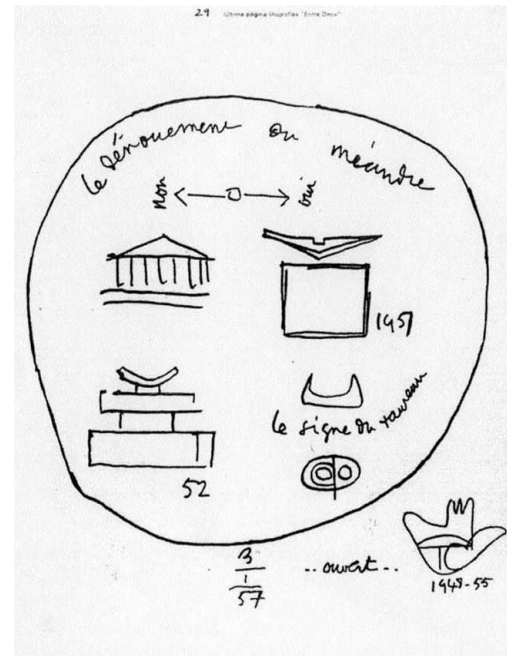 29 Ultima página litografías "Entre Deux"
le dénouement du méandre
non oui
1957
le signe du taureau
52
3
1
57
.. ouvert ..
1948-55